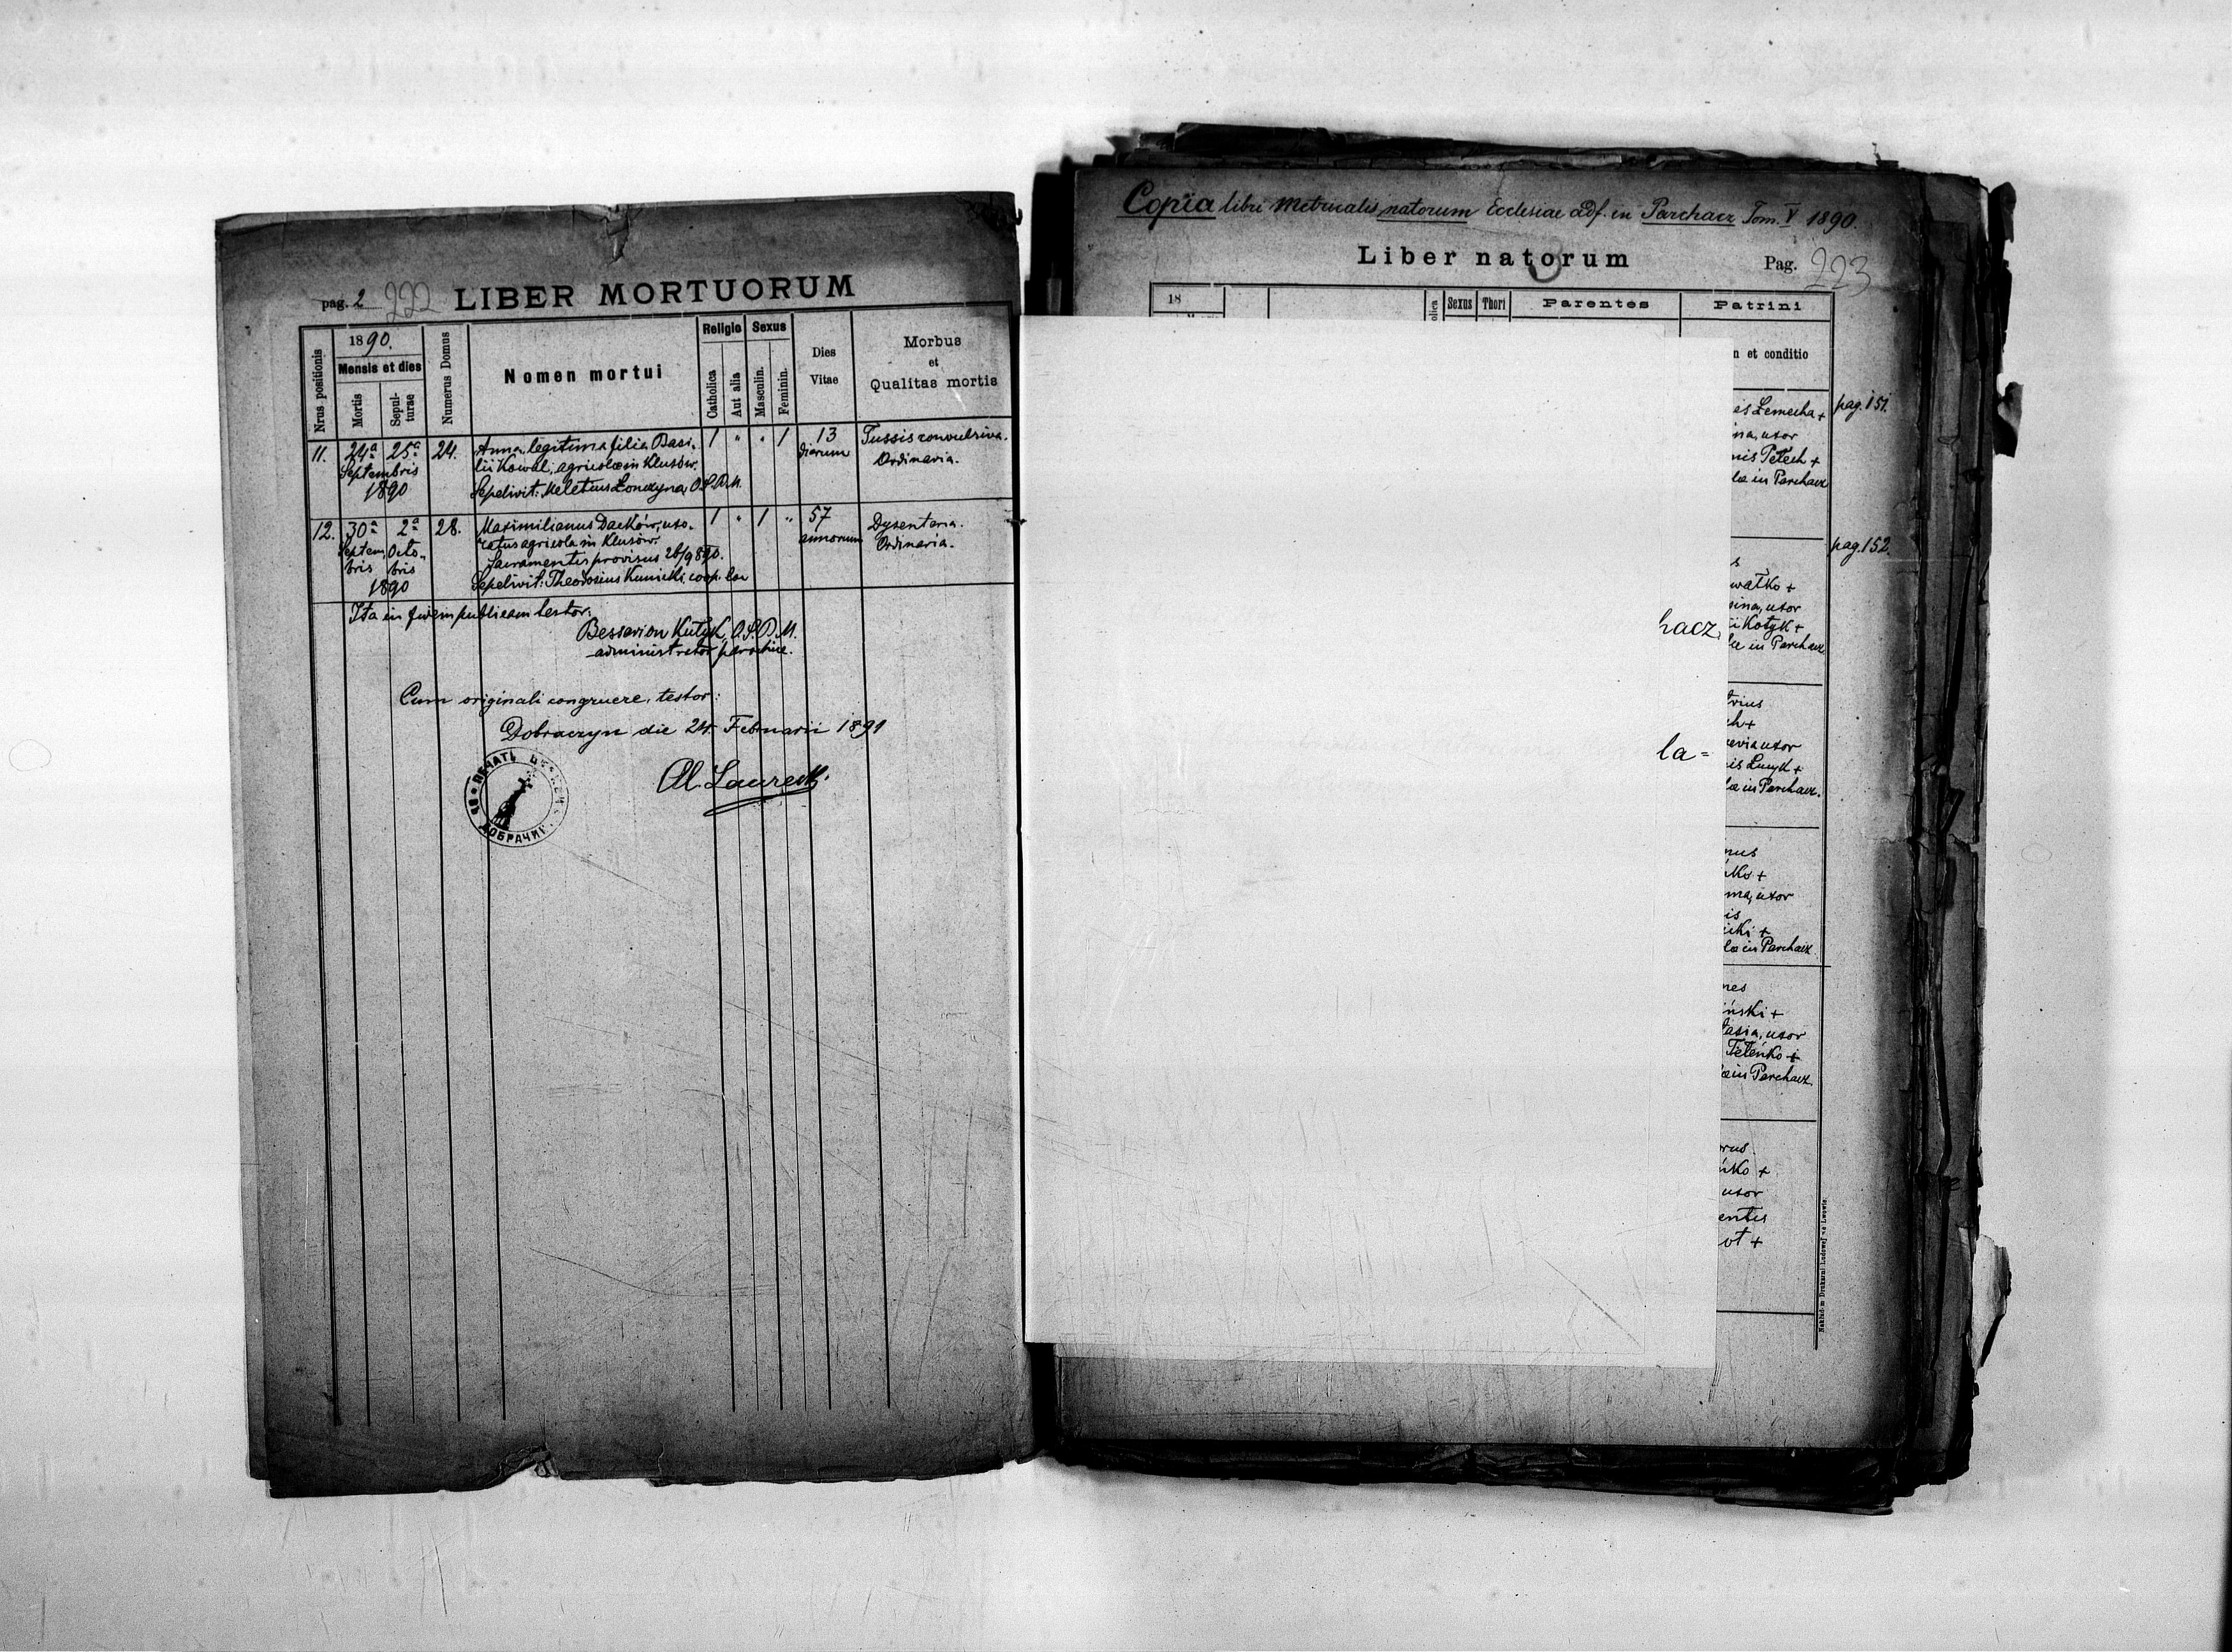 pag. 2 222 LIBER MORTUORUM
Nrus positionis
1890.
Mensis et dies
Mortis
Sepulturae
Numerus Domus
Nomen mortui
Religio
Catholica
Aut alia
Sexus
Masculin.
Feminin.
Dies
Vitae
Morbus
et
Qualitas mortis
11. 24a 25a 24. Anna, legitima filia Basi- 1 " " 1 13 Tussis convulsiva.
Septembris lii Kowal, agricolae in Klusów. dierum Ordinaria.
1890 Sepelivit: Meletius Łonczyna, O.S.B.M.
12. 30a 2a 28. Maximilianus Daćków, uxo- 1 " 1 " 57 Dysenteria.
Septem Octo- ratus agricola in Klusów. annorum Ordinaria.
bris bris Sacramentis provisus 26/9 890.
1890 Sepelivit: Theodosius Kunicki coop.
Ita in fidem publicam testor:
Bessarion Kutyk, O.S.B.M.
administrator parochiae.
Cum originali congruere, testor:
Dobraczyn die 24. Februarii 1891
ПЕЧАТЬ
ДОБРАЧИН
Copia libri Metricalis natorum Ecclesiae adf. in Parchacz Tom. V 1890.
Liber natorum Pag. 223
18
Sexus
Thori
Parentes
Patrini
n et conditio
es Lemecha + pag. 151.
ina, uxor
nis Petech +
lae in Parchacz
pag. 152.
s
watko +
sina, uxor
hacz,
ii Kotyk +
lae in Parchacz
trius
ch +
evia uxor
la=
is Lucyk +
lae in Parchacz.
nus
ńko +
nna, uxor
is
icki +
lae in Parchacz
nes
iński +
tasia, uxor
Teteńko +
lae in Parchacz
orus
ńko +
uxor
entis
ot +
Nakładem Drukarni Ludowej we Lwowie.